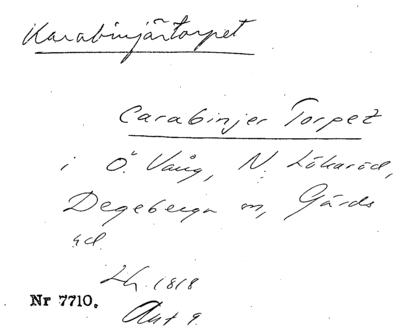 Karabinjärtorpet
Carabinjer Torpet
i Ö. Vång, N. Lökaröd,
Degeberga sn, Gärds
hd.
Lh. 1818
Akt 9.
Nr 7710.